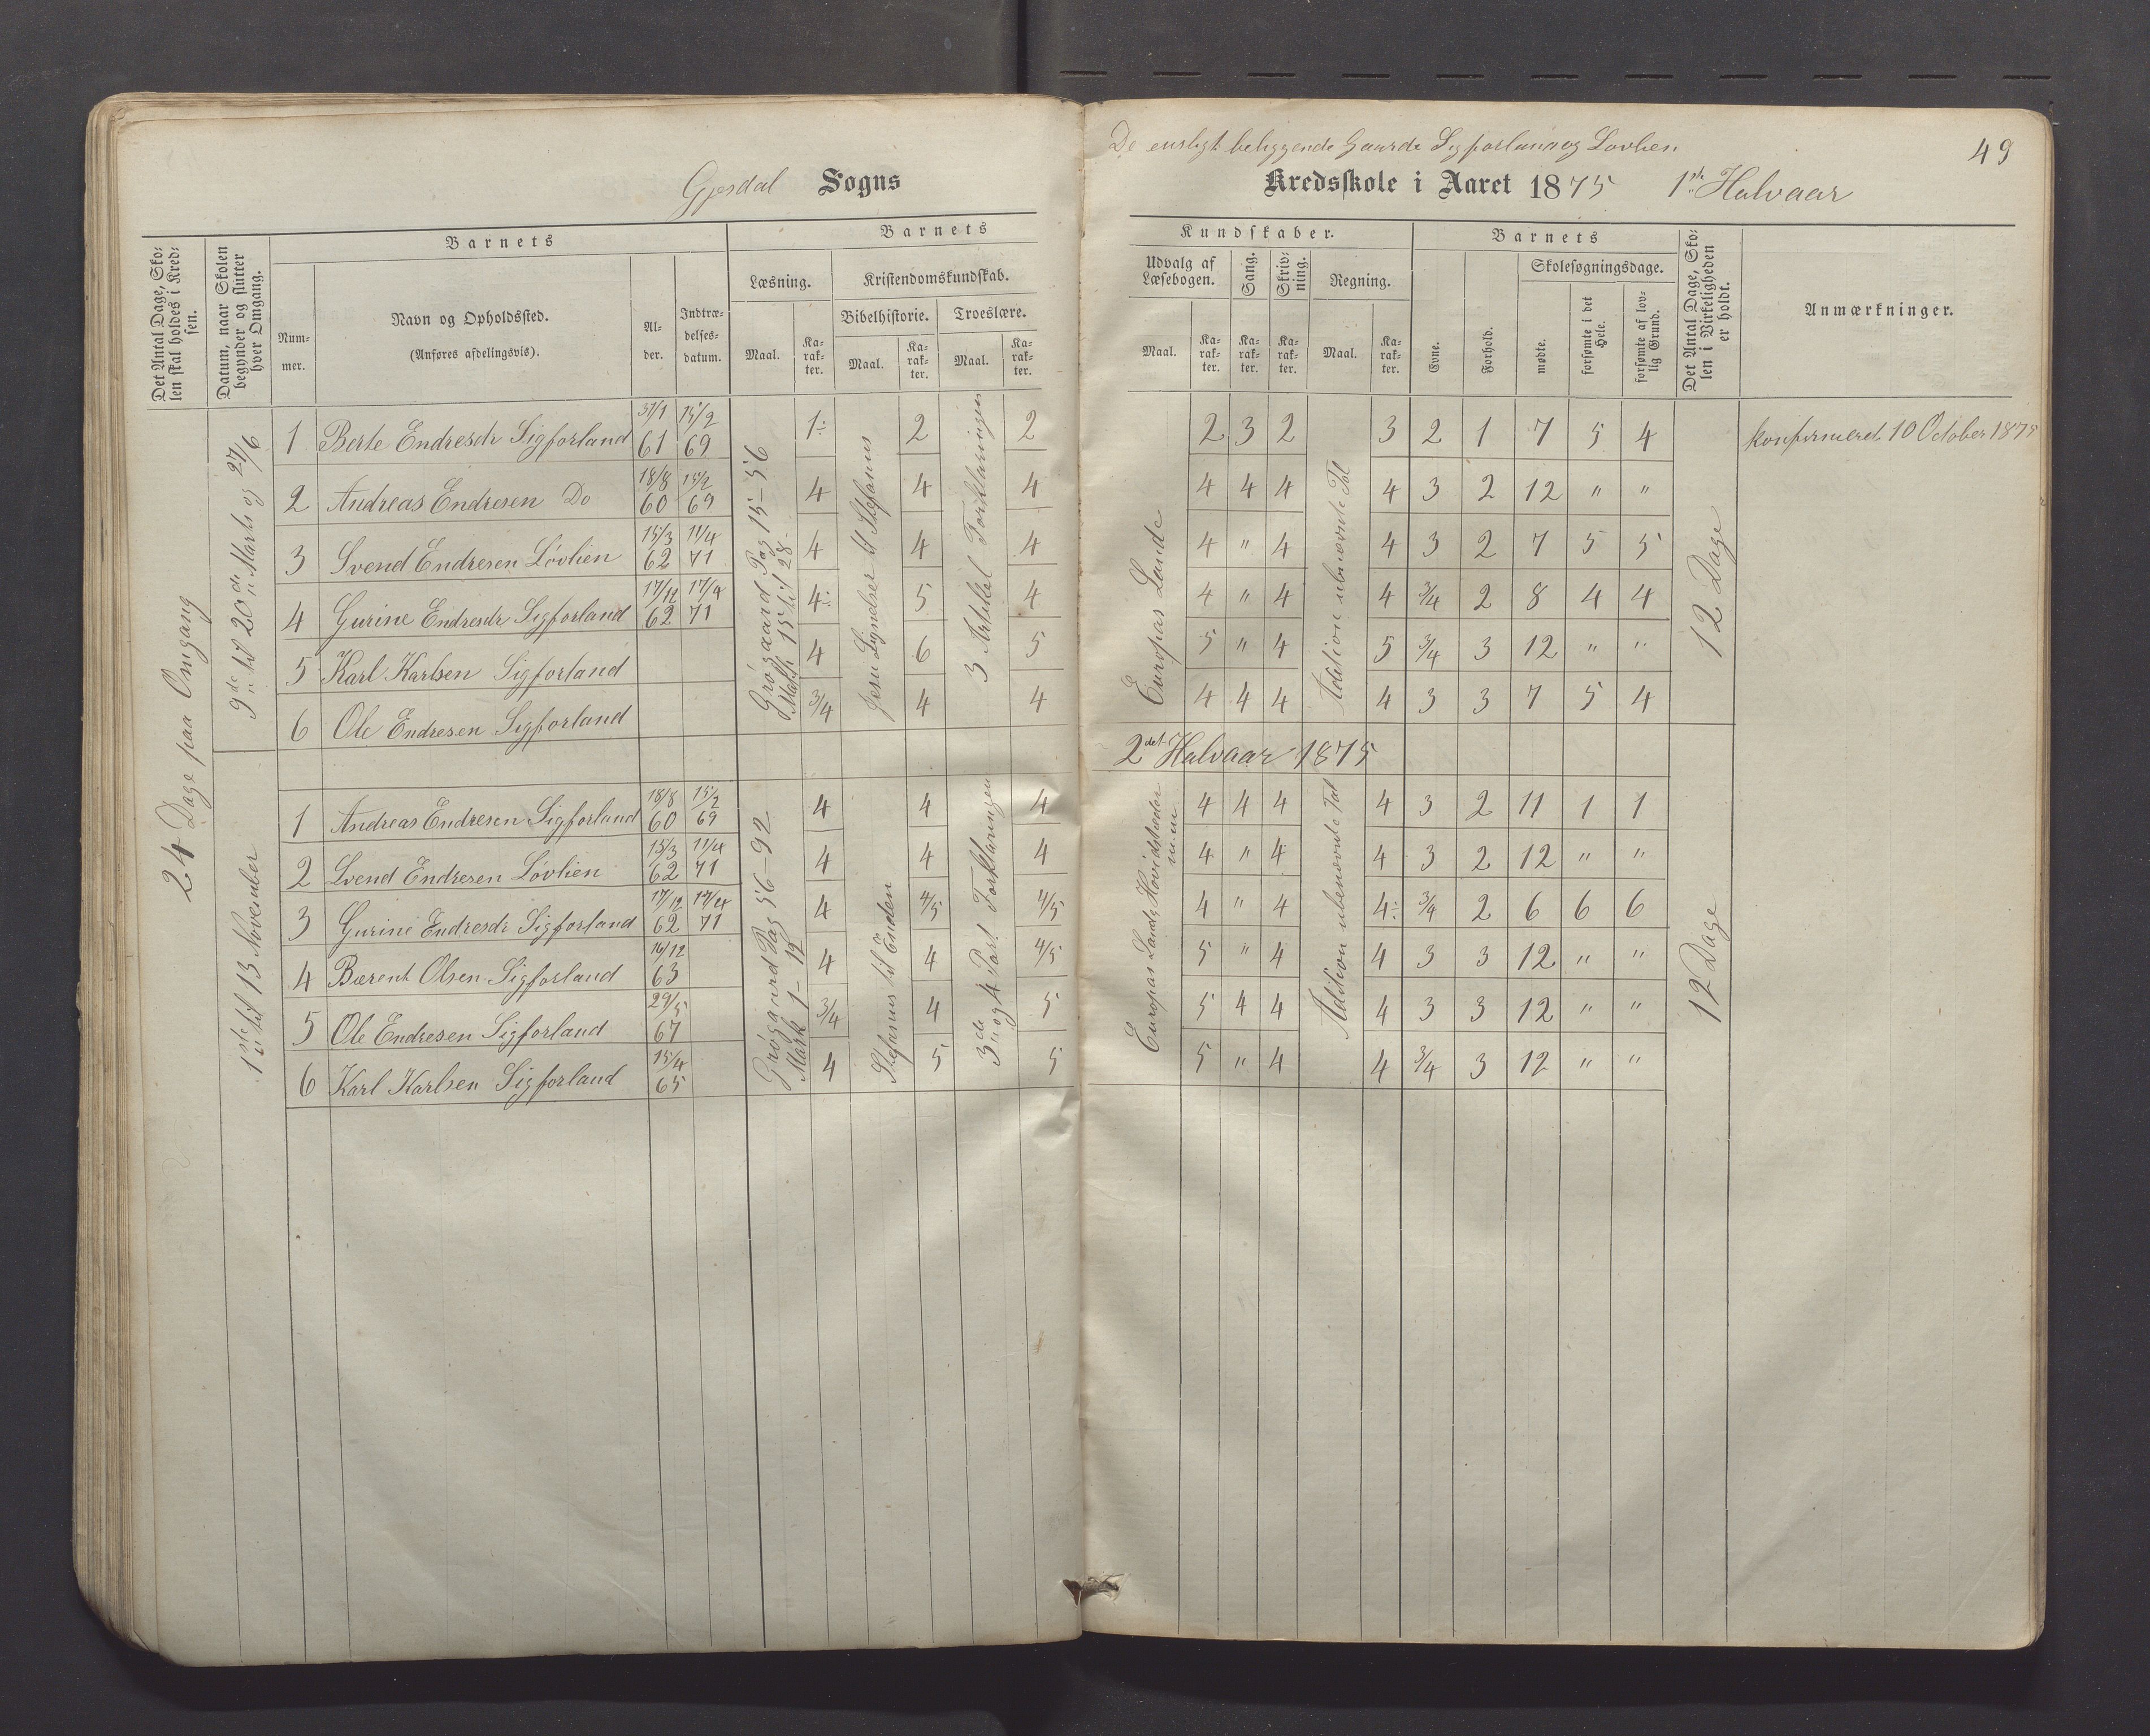 De ensligt beliggende Gaarde Sigforland og Lovlien
49
Gjesdal Sogns
Kredsskole i Aaret 1875 1ste Halvaar
Det Antal Dage, Skolen skal holdes i Kredsen.
Datum, naar Skolen begynder og slutter hver Omgang.
Barnets
Nummer.
Navn og Opholdssted.
(Anføres afdelingsvis).
Alder.
Indtrædelsesdatum.
Barnets
Læsning.
Maal.
Karakter.
Kristendomskundskab.
Bibelhistorie.
Maal.
Karakter.
Troeslære.
Maal.
Karakter.
Kundskaber.
Udvalg af Læsebogen.
Maal.
Karakter.
Sang.
Karakter.
Skrivning.
Karakter.
Regning.
Maal.
Karakter.
Barnets
Evne.
Forhold.
Skolesøgningsdage.
mødte.
forsømte i det Hele.
forsømte af lovlig Grund.
Det Antal Dage, Skolen i Virkeligheden er holdt.
Anmærkninger.
24 Dage paa Omgang
9de til 20de Marts og 27/6
Grøgaard Pag 15-56
Math 15 til 28
Jesu Lignelser til Stefanus
3 Artikel Forklaringen
Europas Lande
Adition ubenævnte Tal
12 Dage
1 Berte Endresdr Sigforland 31/1 61 15/2 69 1÷ 2 2 2 3 2 3 2 1 7 5 4 konfirmeret 10 October 1875
2 Andreas Endresen Do 18/8 60 15/2 69 4 4 4 4 4 4 4 3 2 12 " "
3 Svend Endresen Løvlien 15/3 62 11/4 71 4 4 4 4 " 4 4 3 2 7 5 5
4 Gurine Endresdr Sigforland 17/12 62 17/4 71 4÷ 5 4 4 " 4 4 3/4 2 8 4 4
5 Karl Karlsen Sigforland 4 6 5 5 " 4 5 3/4 3 12 " "
6 Ole Endresen Sigforland 3/4 4 4 4 4 4 4 3 3 7 5 4
2det Halvaar 1875
1ste til 13 November
Grøgaard Pag 56-92
Mark 1-12
Stefanus til Enden
3de og 4 Part Forklaringen
Europas Lande Hovidstæder m.m
Adition ubenævnte Tal
12 Dage
1 Andreas Endresen Sigforland 18/8 60 15/2 69 4 4 4 4 4 4 4 3 2 11 1 1
2 Svend Endresen Løvlien 15/3 62 11/4 71 4 4 4 4 " 4 4 3 2 12 " "
3 Gurine Endresdr Sigforland 17/12 62 17/4 71 4 4/5 4/5 4 " 4 4÷ 3/4 2 6 6 6
4 Bærent Olsen Sigforland 16/12 63 4 4 4/5 5 " 4 4 3 3 12 " "
5 Ole Endresen Sigforland 29/5 67 3/4 4 5 5 4 4 4 3 3 12 " "
6 Karl Karlsen Sigforland 15/4 65 4 5 5 5 " 4 4 3/4 3 12 " "